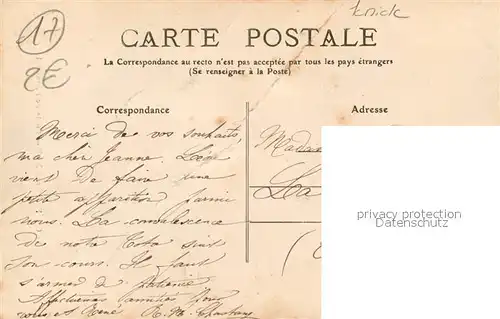 17
2€
trick
CARTE POSTALE
La Correspondance au recto n'est pas acceptée par tous les pays étrangers
(Se renseigner à la Poste)
Correspondance
Adresse
Merci de vos souhaits,
ma cher Jeanne.
vient De faire une
petite apparition parmi
nous. La convalescence
de notre suit
son cours. Il faut
s'armer de patience
Affectueuses amitiés Pour
vous et René
Madam
La
privacy protection
copyright overlay